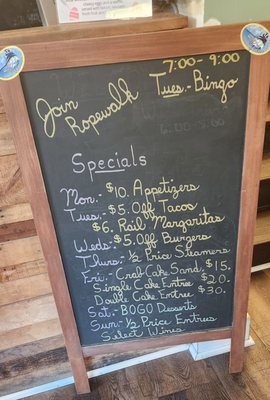 7:00 - 9:00
Join Tues.- Bingo
Ropewalk
Specials
Mon. - $10. Appetizers
Tues. - $5. Off Tacos
$6. Rail Margaritas
Weds - $5. Off Burgers
Thurs. - ½ Price Steamers
Fri. - Crab Cake Sand. $15.
Single Cake Entree $20.
Double Cake Entree $30.
Sat. - BOGO Desserts
Sun. - ½ Price Entrees
Select Wines